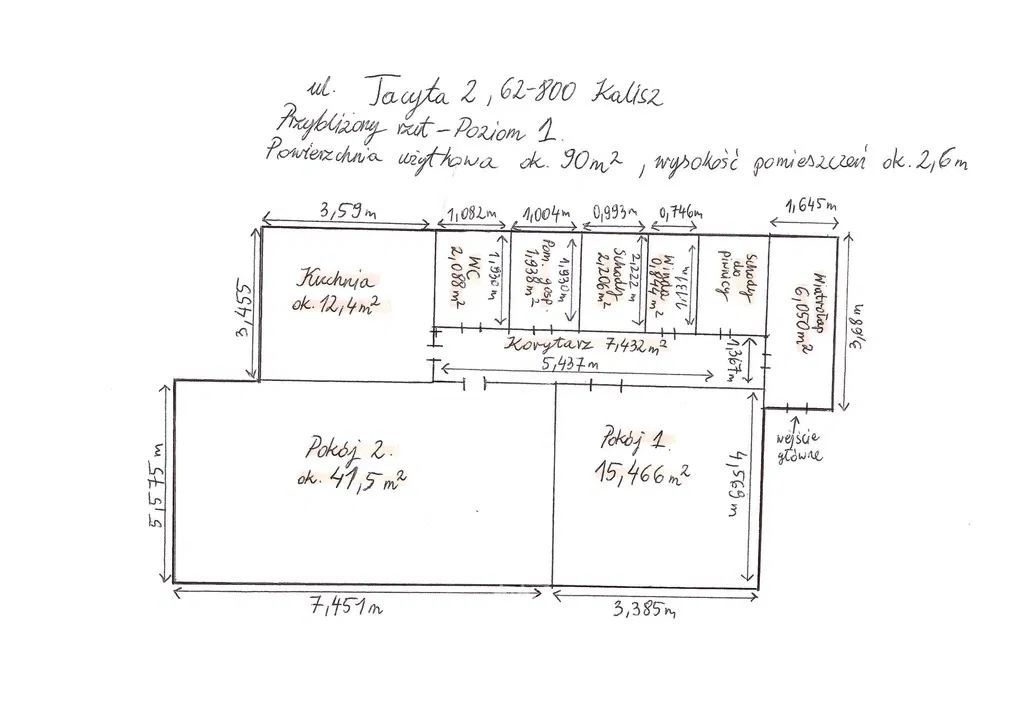 ul. Tacyta 2, 62-800 Kalisz
Przybliżony rzut - Poziom 1.
Powierzchnia użytkowa ok. 90m², wysokość pomieszczeń ok. 2,6m
3,59m
1,082m
1,004m
0,993m
0,746m
1,645m
3,455
Kuchnia
ok. 12,4m²
WC
2,088m²
1,930m
Pom. gosp.
1,938m²
1,930m
Schody
2,206m²
2,222m
Winda
0,844m²
1,131m
Schody
do
piwnicy
Wiatrołap
6,050m²
3,68m
Korytarz 7,432m²
5,437m
1,367m
wejście
główne
5,575m
Pokój 2.
ok. 41,5m²
Pokój 1.
15,466m²
4,569m
7,451m
3,385m